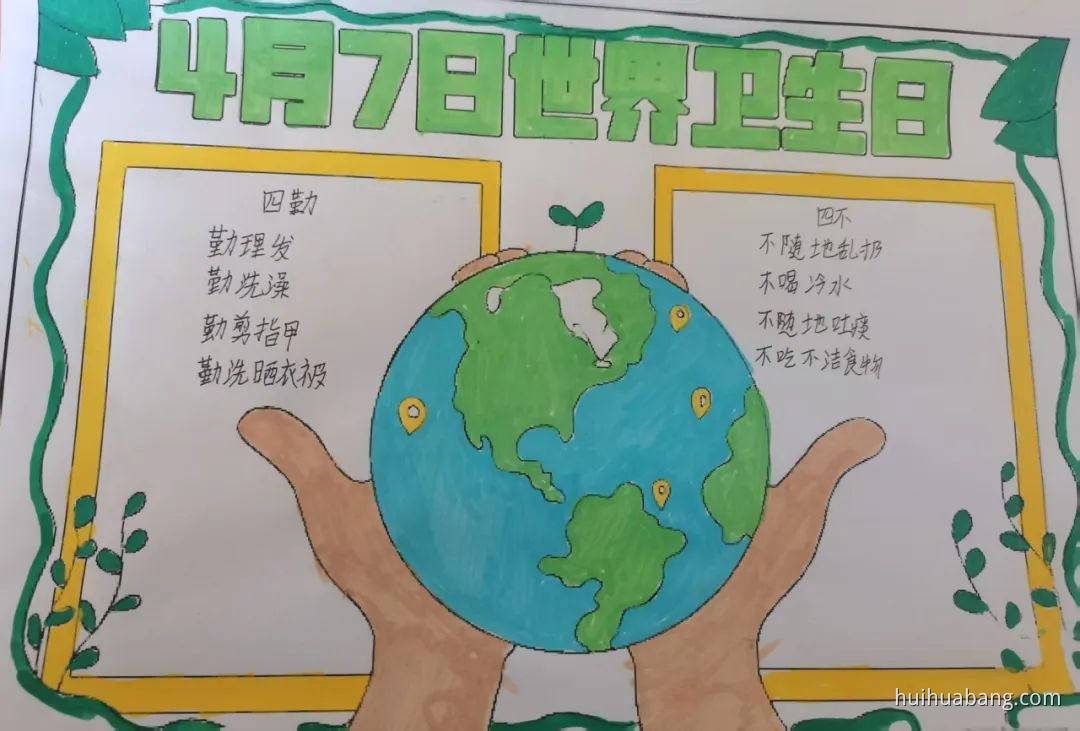 4月7日世界卫生日
四勤
勤理发
勤洗澡
勤剪指甲
勤洗晒衣被
四不
不随地乱扔
不喝冷水
不随地吐痰
不吃不洁食物
huihuabang.com